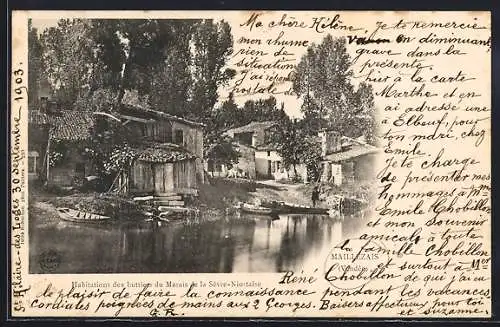 St Hilaire - des Loges 30 Septembre 1903.
Ma chère Hélène Je te remercie
mon rhume en diminuant
grave dans la
présente.
situation
j'ai répondu
hier à la carte
Marthe et j'en
ai adressé une
à Elbeuf, pour
ton mdri, chez
Emile.
Je te charge
de présenter mes
hommages à Mme
Emile Chobillon
et mon souvenir
amical à toute
la famille Chobillon
surtout à Mr
René Chobillon de qui j'ai eu
MAILLEZAIS
(Vendée)
Habitations des huttiers du Marais de la Sèvre-Niortaise
le plaisir de faire la connaissance pendant les vacances
Cordiales poignées de mains aux 2 Georges. Baisers affectueux pour toi
G. R.